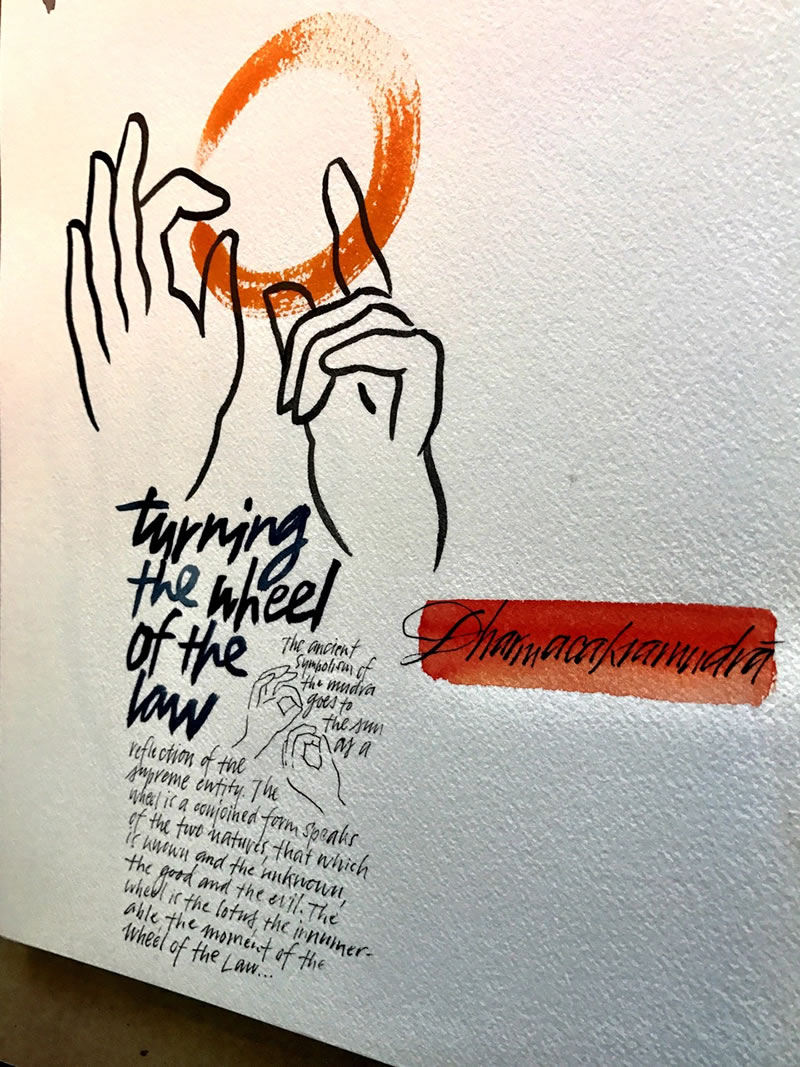 turning
the wheel
of the
law
The ancient
symbolism of
the mudra
goes to
the sun
as a
reflection of the
supreme entity. The
wheel is a conjoined form speaks
of the two natures, that which
is known and the unknown,
the good and the evil. The
wheel is the lotus, the innumer-
able, the moment of the
wheel of the Law...
Dharmacakramudrā